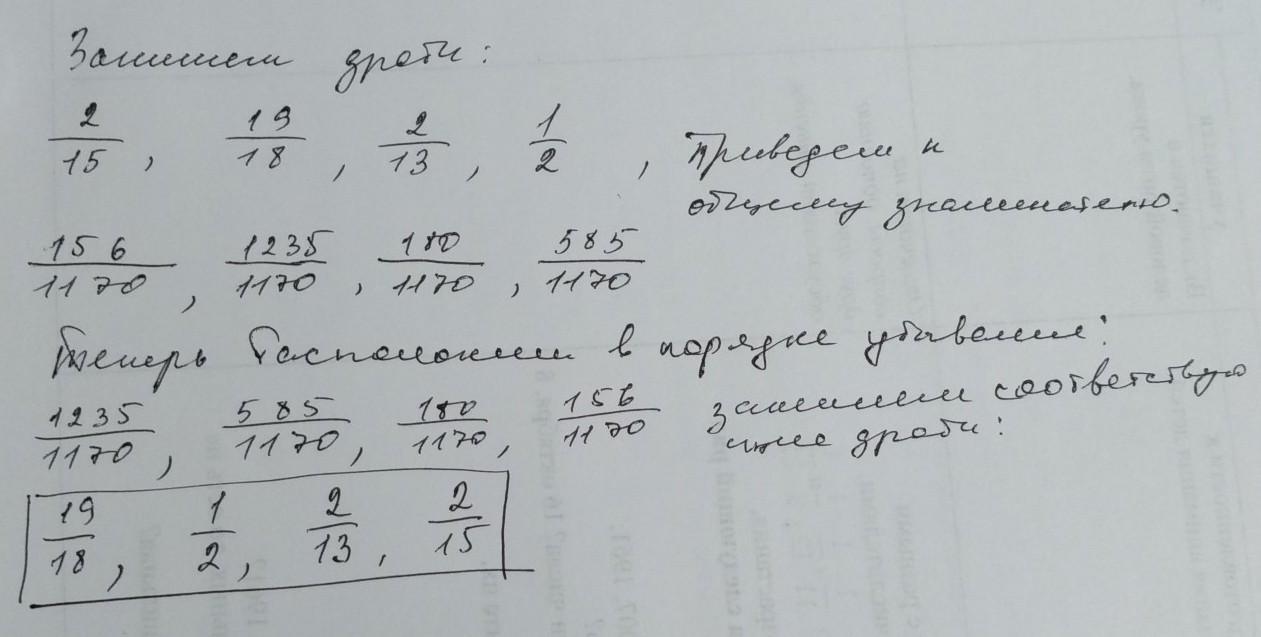 Запишем дроби:
2/15, 19/18, 2/13, 1/2, приведем к
общему знаменателю.
156/1170, 1235/1170, 180/1170, 585/1170
Теперь расположим в порядке убывания:
1235/1170, 585/1170, 180/1170, 156/1170 запишем соответствую
щие дроби:
19/18, 1/2, 2/13, 2/15